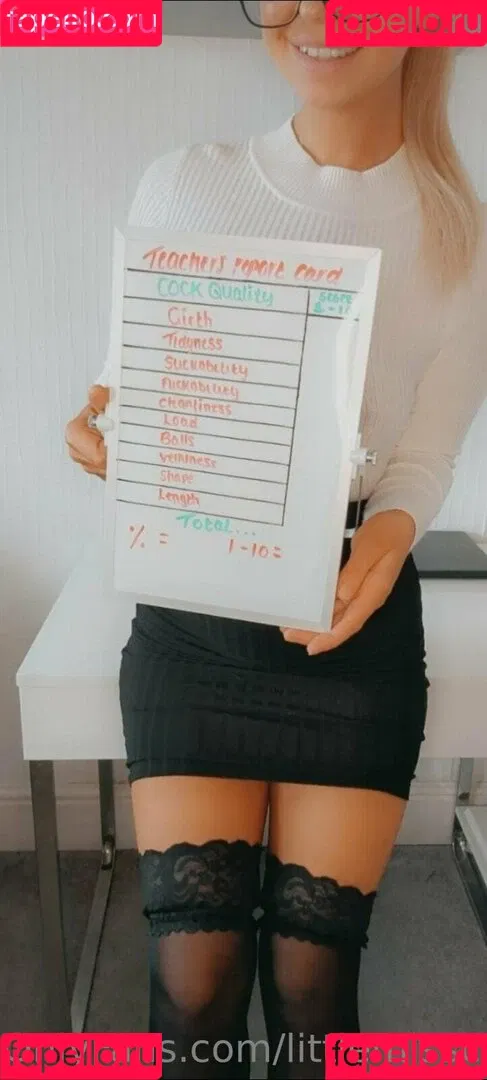 fapello.ru fapello.ru
Teachers report card
COCK Quality
Score
Girth
Tidyness
Suckability
Fuckability
cleanliness
Load
Balls
veininess
Shape
Length
Total...
% = 1-10=
fapello.ru fapello.ru